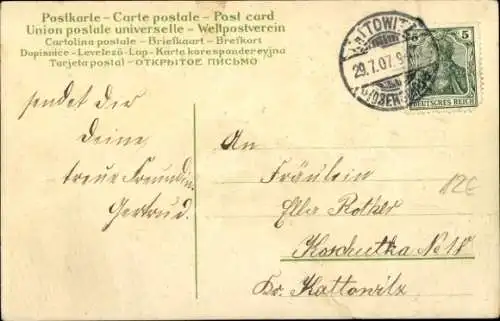 Postkarte - Carte postale - Post card
Union postale universelle - Weltpostverein
Cartolina postale - Briefkaart - Brefkort
Dopisnice - Levelező-Lap - Karta korespondencyjna
Tarjeta postal - ОТКРЫТОЕ ПИСЬМО
29.7.07. 9-
5
DEUTSCHES REICH
sendet Dir
Deine
treue Freundin
Gertrud.
An
Fräulein
Ella Rother
Koschutka No 17
Kr. Kattowitz
12€